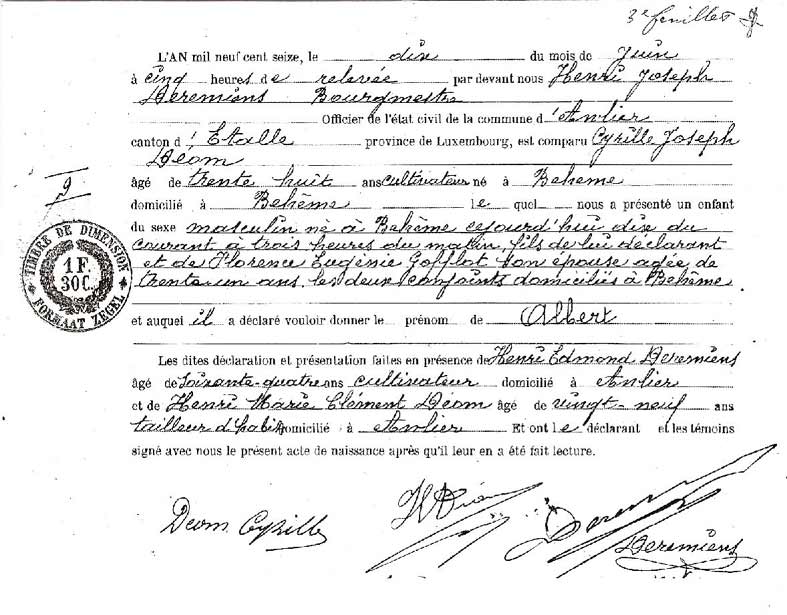 3e feuillet
L'AN mil neuf cent seize, le dix du mois de Juin
à cinq heures de relevée par devant nous Henri Joseph
Deremiens Bourgmestre
Officier de l'état civil de la commune d'Anlier
canton d'Etalle province de Luxembourg, est comparu Cyrille Joseph
Déom
âgé de trente huit ans cultivateur né à Behême
domicilié à Behême le quel nous a présenté un enfant
du sexe masculin né à Behême cejourd'hui dix du
courant à trois heures du matin, fils de lui déclarant
et de Florence Eugénie Gofflot son épouse agée de
trente-un ans, les deux conjoints domiciliés à Behême
et auquel il a déclaré vouloir donner le prénom de Albert
Les dites déclaration et présentation faites en présence de Henri Edmond Deremiens
âgé de Soixante-quatre ans cultivateur domicilié à Anlier
et de Henri Marie Clément Déom âgé de vingt-neuf ans
tailleur d'habits domicilié à Anlier Et ont le déclarant et les témoins
signé avec nous le présent acte de naissance après qu'il leur en a été fait lecture.
9
TIMBRE DE DIMENSION
1 F.
30C.
FORMAAT ZEGEL
Deom Cyrille
H Déom
Deremiens
Deremiens